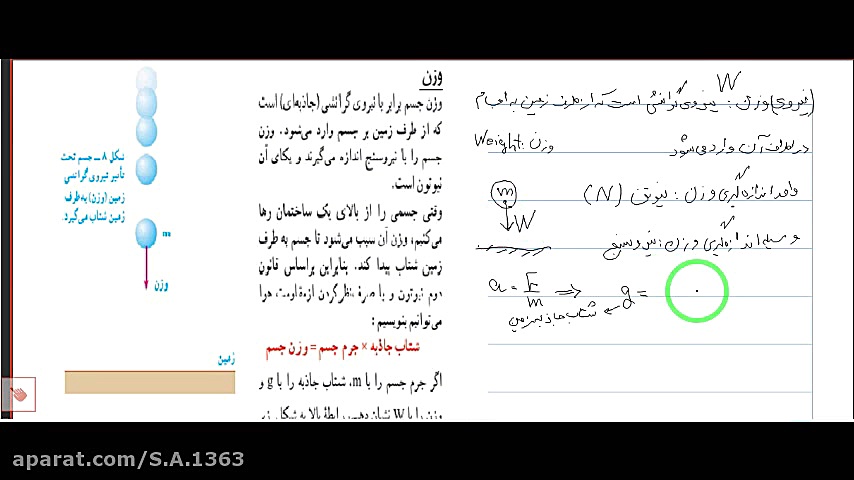 وزن
وزن جسم برابر با نیروی گرانشی (جاذبه‌ای) است
که از طرف زمین بر جسم وارد می‌شود. وزن
جسم را با نیروسنج اندازه می‌گیرند و یکای آن
نیوتون است.
وقتی جسمی را از بالای یک ساختمان رها
می‌کنیم، وزن آن سبب می‌شود تا جسم به طرف
زمین شتاب پیدا کند. بنابراین براساس قانون
دوم نیوتون و با صرف‌نظرکردن ازمقاومت هوا
می‌توانیم بنویسیم :
شتاب جاذبه × جرم جسم = وزن جسم
اگر جرم جسم را با m، شتاب جاذبه را با g و
وزن را با W نشان دهیم، رابطهٔ بالا به شکل زیر
شکل ۸ ــ جسم تحت
تأثیر نیروی گرانشی
زمین (وزن) به‌طرف
زمین شتاب می‌گیرد.
m
وزن
زمین
W
(نیروی) وزن : نیروی گرانشی است که از طرف زمین به اجسام
در اطراف آن وارد می‌شود
وزن : Weight
واحد اندازه‌گیری وزن : نیوتن (N)
m
W
وسیله اندازه‌گیری وزن : نیروسنج
a = F/m ⇒ g =
شتاب جاذبه زمین
aparat.com/S.A.1363